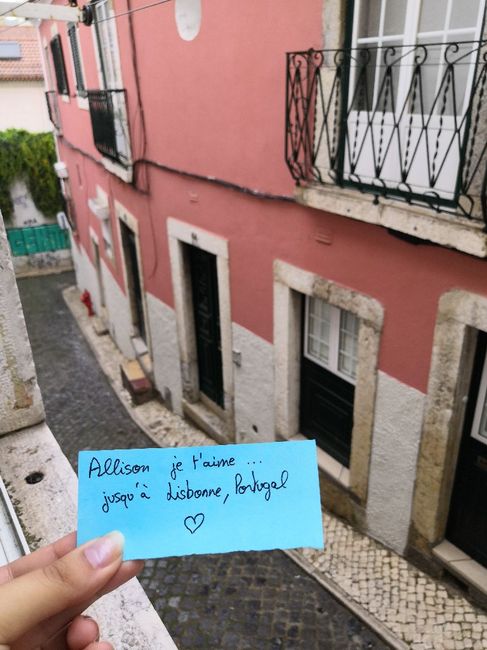 Allison je t'aime ...
jusqu'à Lisbonne, Portugal
♡